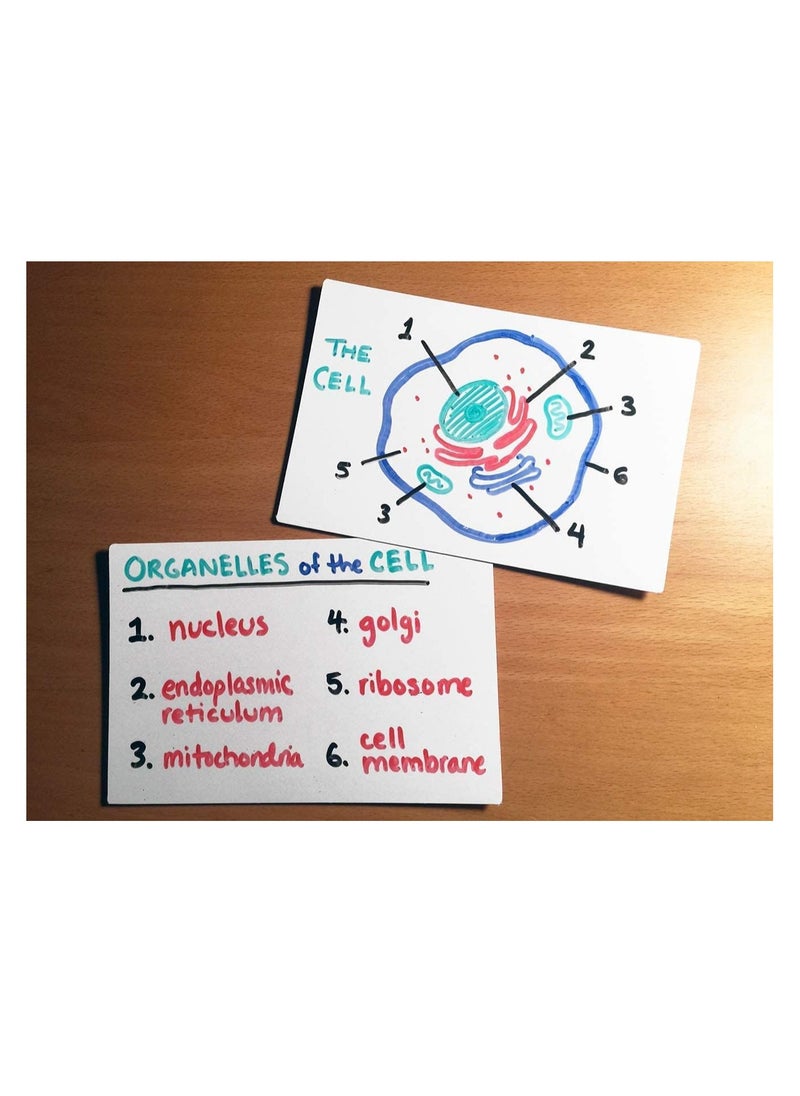 THE
CELL
1
2
3
6
4
3
5
ORGANELLES of the CELL
1. nucleus
2. endoplasmic
reticulum
3. mitochondria
4. golgi
5. ribosome
6. cell
membrane